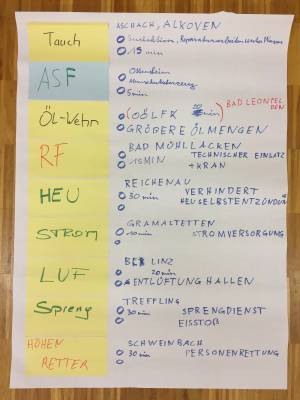 Tauch
ASCHACH, ALKOVEN
15 min
ASF
Ottensheim
5min
Öl-Wehr
(OÖLFK 20 min) BAD LEONFEL
DEN
GRÖßERE ÖLMENGEN
RF
BAD MÜHLLACKEN
15MIN TECHNISCHER EINSATZ
+ KRAN
HEU
REICHENAU
30 min VERHINDERT
HEUSELBSTENTZÜNDUN
STROM
GRAMALTETTEN
STROMVERSORGUNG
LUF
LINZ
20min
ENTLÜFTUNG HALLEN
Spreng
TREFFLING
30min SPRENGDIENST
EISSTOß
HÖHEN
RETTER
SCHWEINBACH
30 min PERSONENRETTUNG